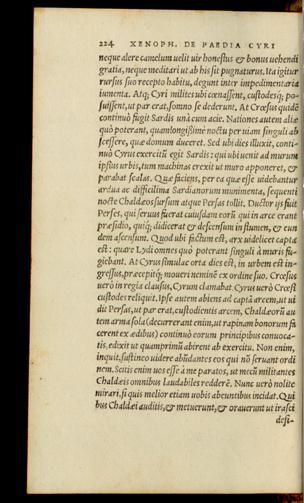 224 XENOPH. DE PAEDIA CYRI
neque alere camelum uelit uir honestus & bonus uehendi
gratia, neque meditari ut ab his sit pugnaturus. Ita igitur
rursus suo recepto habitu, degunt inter impedimentaria
iumenta. Atq; Cyri milites ubi cœnassent, custodesq; po-
suissent, ut par erat, somno se dederunt. At Crœsus quidē
continuò fugit Sardis unà cum acie. Nationes autem aliæ
quò poterant, quàm longißimè noctu per uiam singuli ab
scessere, quæ domum duceret. Sed ubi dies illuxit, conti-
nuò Cyrus exercitū egit Sardis: qui ubi uenit ad murum
ipsius urbis, tum machinas erexit ut muro apponeret, &
parabat scalas. Quæ faciens, per ea quæ esse uidebantur
ardua ac difficilima Sardianorum munimenta, sequenti
nocte Chaldæos sursum atque Persas tollit. Ductor ijs fuit
Perses, qui seruus fuerat cuiusdam eorū qui in arce erant
præsidio, quiq; didicerat & descensum in flumen, & eun
dem ascensum. Quod ubi factum est, arx uidelicet capta
est: quare Lydi omnes quò poterant singuli à muris fu-
giebant. At Cyrus simulac orta dies est, in urbem est in-
gressus, præcepitq; moueri neminē ex ordine suo. Crœsus
uerò in regia clausus, Cyrum clamabat. Cyrus uerò Crœsi
custodes reliquit. Ipse autem abiens ad captā arcem, ut ui
dit Persas, ut par erat, custodientis arcem, Chaldæorū au
tem arma sola (decurrerant enim, ut rapinam bonorum fa
cerent ex ædibus) continuò eorum principibus conuoca-
tis, edixit ut quamprimū abirent ab exercitu. Non enim,
inquit, sustineo uidere abūdantes eos qui nō seruant ordi
nem. Scitis enim uos esse à me paratos, ut mecū militantes
Chaldæis omnibus laudabiles redderē. Nunc uerò nolite
mirari, si quis melior etiam uobis abeuntibus incidat. Qui
bus Chaldæi auditis, & metuerunt, & orauerunt ut irasci
desi-